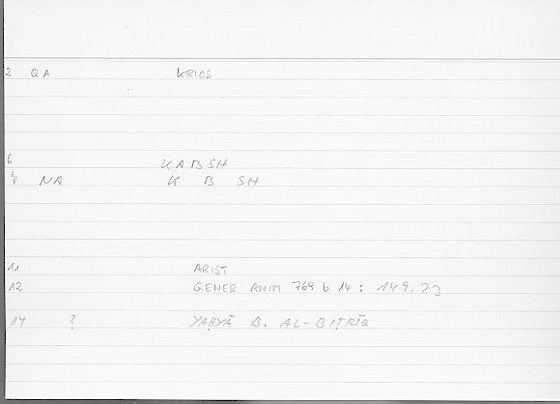 2 QA KRIOS
6 KABSH
NA K B SH
11 ARIST
12 GENER ANIM b 14 : 149.
14 ? YAḤYĀ B. AL-BIṬRĪQ